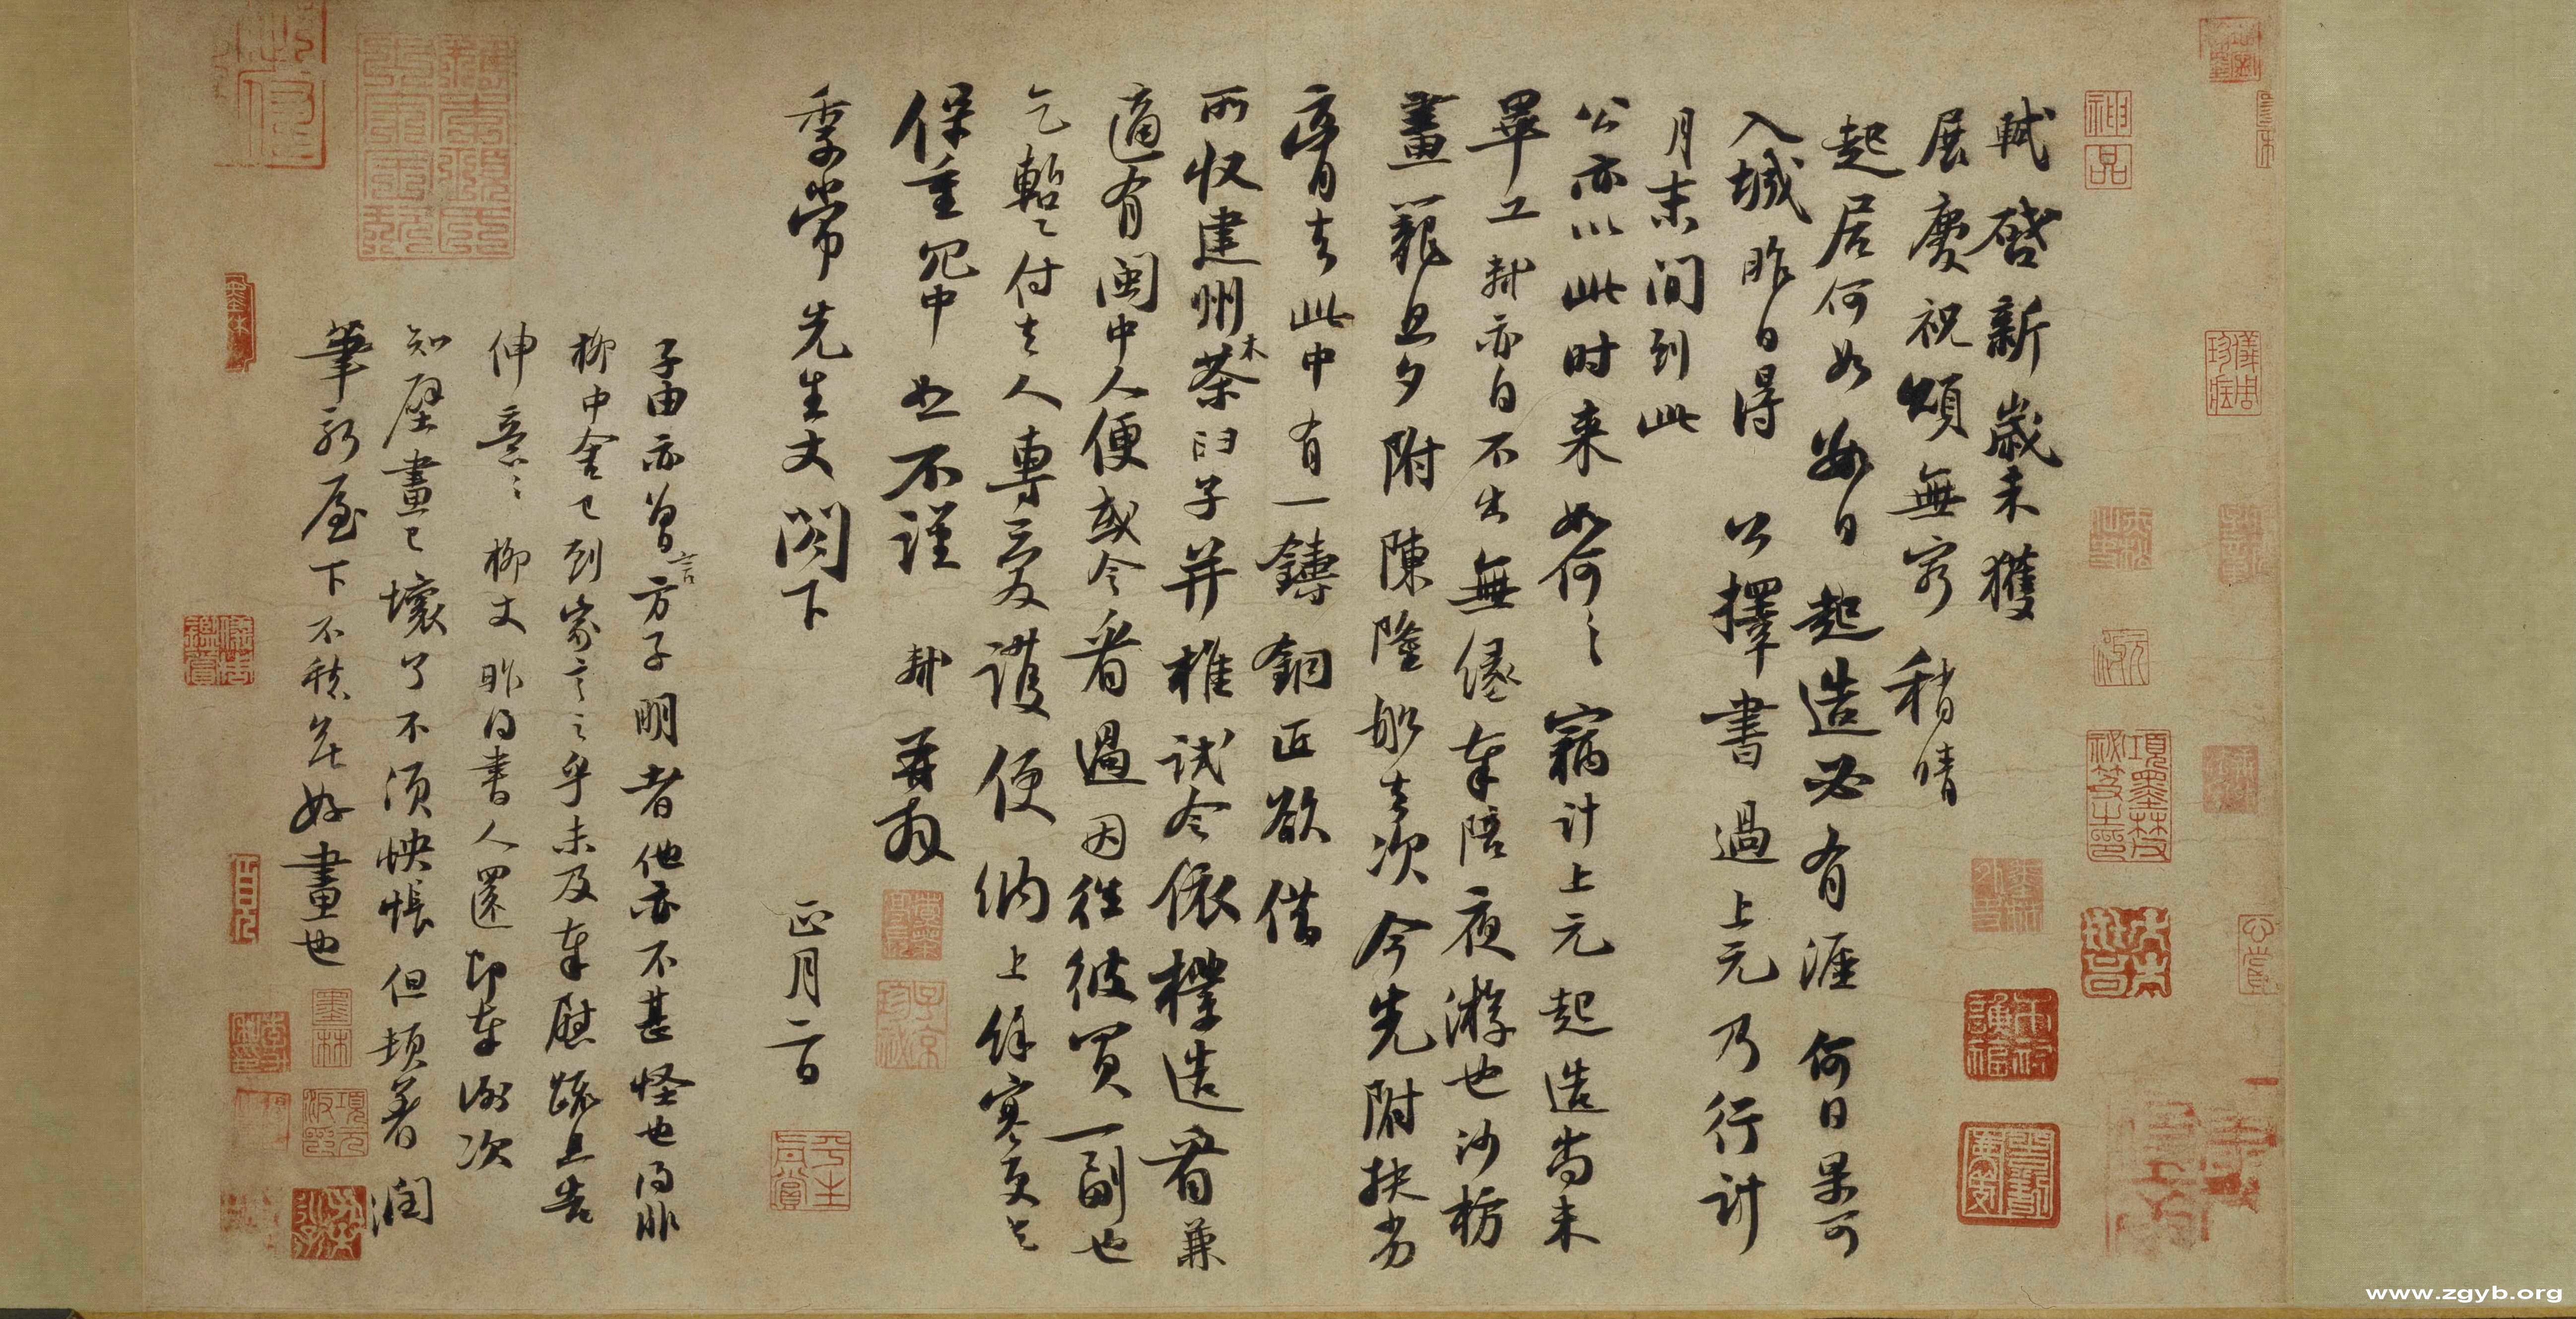 軾啓新歲未獲
展慶祝頌無窮稍晴
起居何如數日起造必有涯何日果可
入城昨日得公擇書過上元乃行計
月末間到此
公亦以此時來如何〻竊計上元起造尚未
畢工軾亦自不出無緣奉陪夜游也沙枋
畫籠旦夕附陳隆船去次今先附扶劣
膏去此中有一鑄銅匠欲借
所收建州木茶臼子并椎試令依樣造看兼
適有閩中人便或令看過因往彼買一副也
乞暫付去人專愛護便納上餘寒更乞
保重冗中恕不謹軾再拜
季常先生丈閣下
正月二日
子由亦曾言方子明者他亦不甚怪也得非
柳中舍已到家言之乎未及奉慰疏且告
伸意〻柳丈昨得書人還即奉謝次
知壁畫已壞了不須怏悵但頓著潤
筆新屋下不愁無好畫也
神
品
儀周
珍藏
項墨林
祕笈之印
墨林
www.zgyb.org